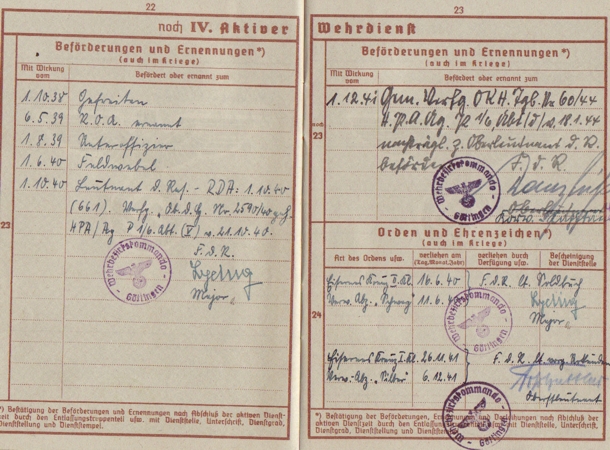 22
noch IV. Aktiver
Beförderungen und Ernennungen*)
(auch im Kriege)
Mit Wirkung vom
Befördert oder ernannt zum
1.10.38 Gefreiten
6.5.39 R.O.A. ernannt
1.8.39 Unteroffizier
1.6.40 Feldwebel
1.10.40 Leutnant d. Res. - RDA: 1.10.40
(661). Verfg. Ob.d.H. Nr. 2590/40
HPA/Ag P 1/6. Abt. (V) v. 21.10.40.
F.d.R.
Major
23
Wehrbezirkskommando
Göttingen
*) Bestätigung der Beförderungen und Ernennungen nach Abschluß der aktiven Dienst-
zeit durch den Entlassungstruppenteil usw. mit Dienststelle, Unterschrift, Dienstgrad,
Dienststellung und Dienststempel.
23
Wehrdienst
Beförderungen und Ernennungen*)
(auch im Kriege)
Mit Wirkung vom
Befördert oder ernannt zum
1.12.41 Gem. Verfg. OKH. Tgb. Nr. 60/44
H.P.A. Ag. P1/6. Abt. v. 18.1.44
nachträgl. z. Oberleutnant d. R.
befördert
F.d.R.
noch
23
Wehrbezirkskommando
Göttingen
Orden und Ehrenzeichen*)
(auch im Kriege)
Art des Ordens usw.
verliehen am
(Tag, Monat, Jahr)
verliehen durch
Verfügung usw.
Bescheinigung
der Dienststelle
Eisernes Kreuz II. Kl. 16.6.40 F.d.R. lt. Soldbuch
Verw. Abz. „Schwarz" 11.6.40
Major
24
Wehrbezirkskommando
Göttingen
Eisernes Kreuz I. Kl. 26.11.41 F.d.R. lt. vorg. Urkunden
Verw.-Abz. „Silber" 6.12.41
Oberstleutnant
Wehrbezirkskommando
Göttingen
*) Bestätigung der Beförderungen, Ernennungen und Verleihungen nach Abschluß der
aktiven Dienstzeit durch den Entlassungstruppenteil usw. mit Dienststelle, Unterschrift,
Dienstgrad, Dienststellung und Dienststempel.